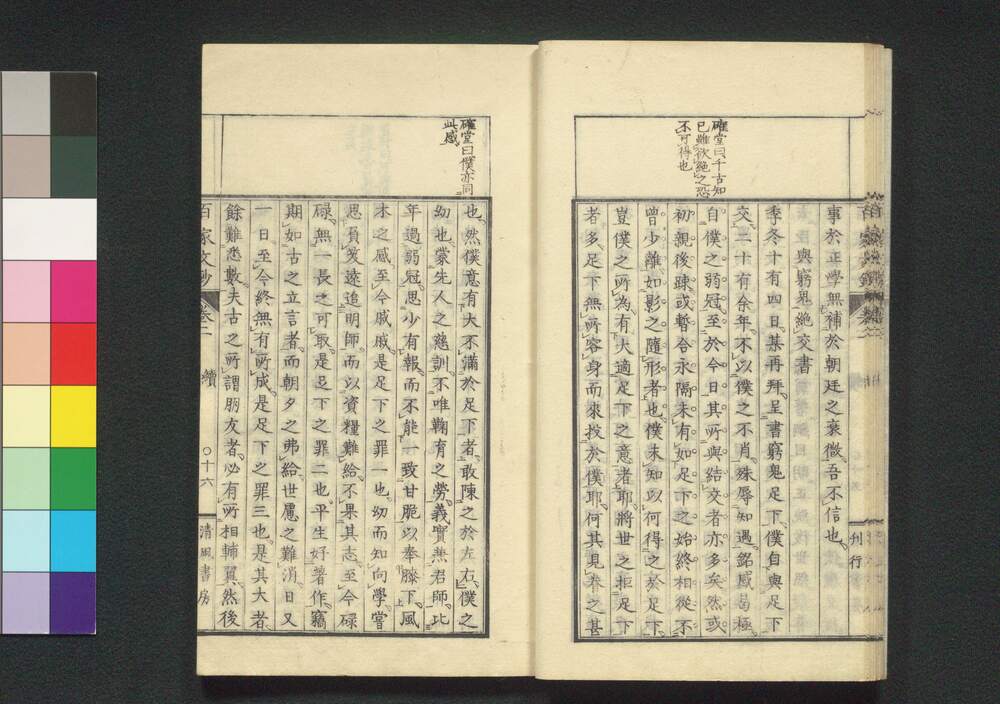 確堂曰千古知
己雖欲絶之恐
不可得也
刊行
事於正學無補於朝廷之衰微吾不信也
與窮鬼絶交書
季冬十有四日某再拜呈書窮鬼足下僕自與足下
交二十有余年不以僕之不肖殊辱知遇銘感曷極
自僕之弱冠至於今日其所與結交者亦多矣然或
初親後疎或暫合永隔未有如足下之始終相從不
曾少離如影之隨形者也僕未知以何得之於足下
豈僕之所為有大適足下之意者耶將世之拒足下
者多足下無所容身而來投於僕耶何其見眷之甚
確堂曰僕亦同
此感
也然僕意有大不滿於足下者敢陳之於左右僕之
幼也蒙先人之慈訓不唯鞠育之勞義實無君師比
年過弱冠思少有報而不能一致甘脆以奉膝下風
木之感至今戚戚是足下之罪一也幼而知向學嘗
思負笈遠追明師而以資糧難給不果其志至今碌
碌無一長之可取是足下之罪二也平生好著作竊
期如古之立言者而朝夕之弗給世慮之難消日又
一日至今終無有所成是足下之罪三也是其大者
餘難悉數夫古之所謂朋友者必有所相輔翼然後
百家文鈔 卷二 續 〇十六 清風書房